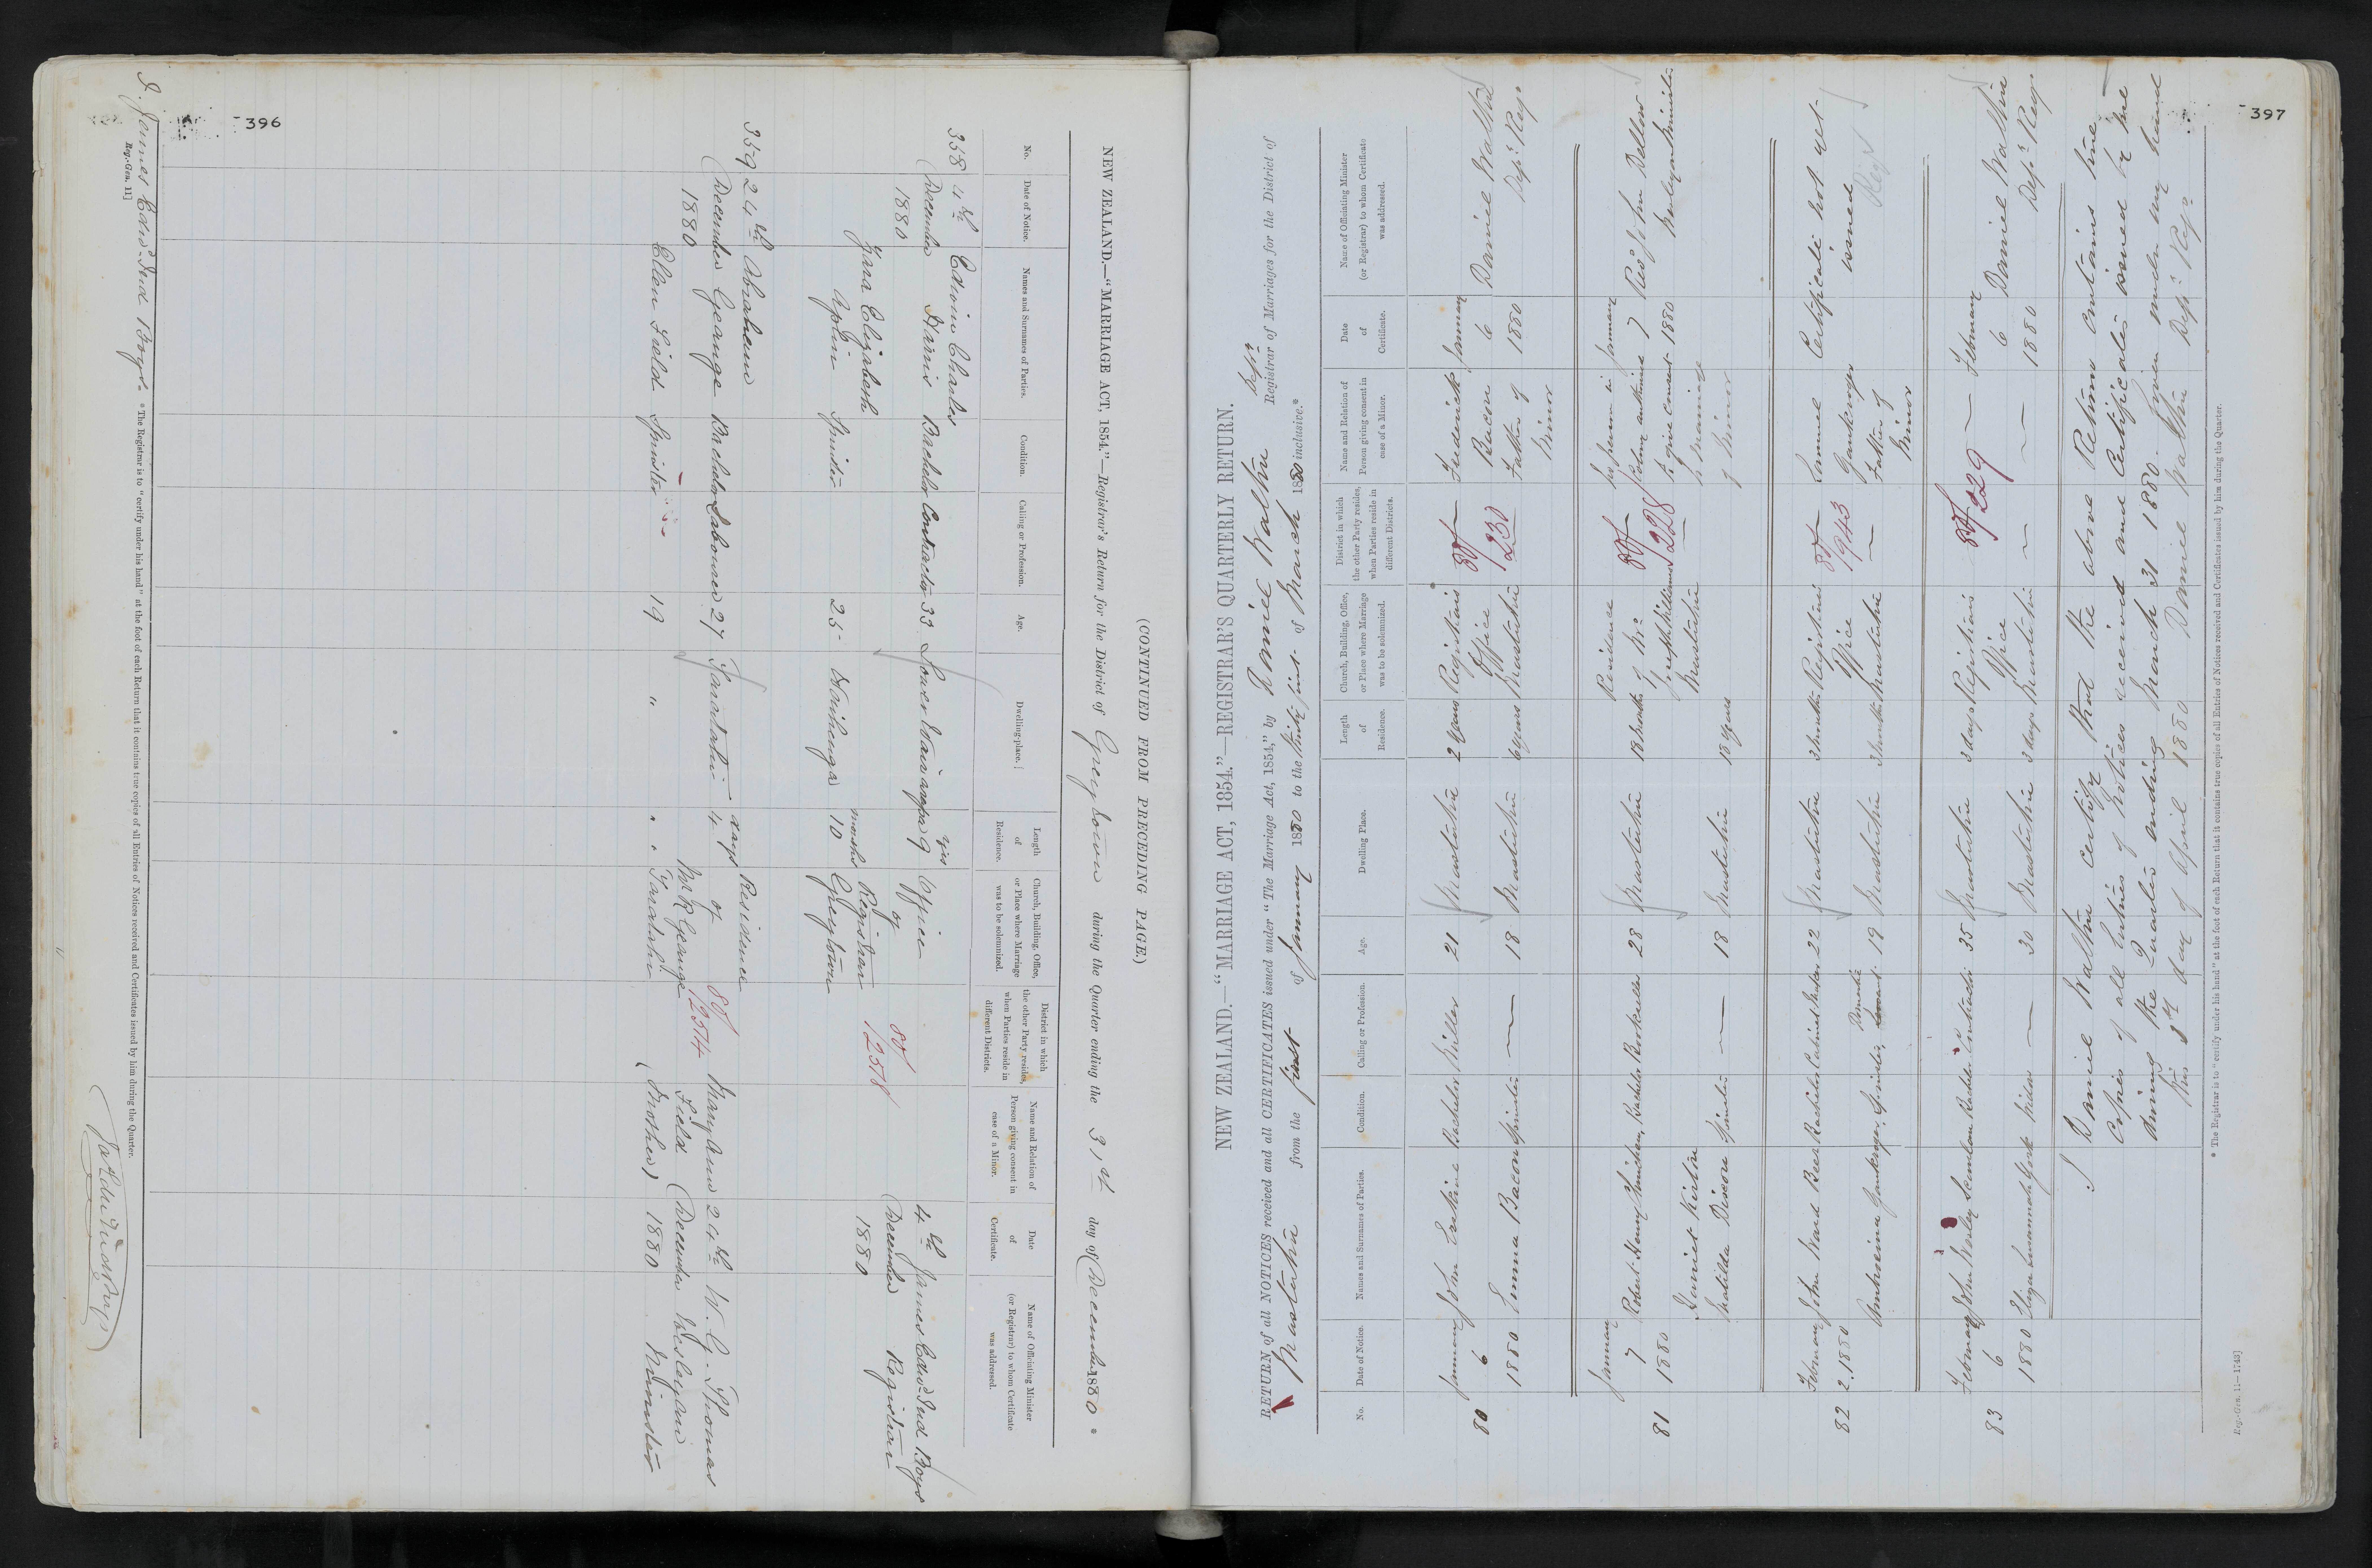 396
(CONTINUED FROM PRECEDING PAGE.)
NEW ZEALAND.—"MARRIAGE ACT, 1854."—Registrar's Return for the District of Greytown during the Quarter ending the 31st day of December 1880 *
No.
Date of Notice.
Names and Surnames of Parties.
Condition.
Calling or Profession.
Age.
Dwelling-place.
Length of Residence.
Church, Building, Office, or Place where Marriage was to be solemnized.
District in which the other Party resides, when Parties reside in different Districts.
Name and Relation of Person giving consent in case of a Minor.
Date of Certificate.
Name of Officiating Minister (or Registrar) to whom Certificate was addressed.
358 4th December 1880
Edwin Charles Harris Bachelor Contractor 33 Lower Wairarapa 9 yrs
Zara Elizabeth Aplin Spinster 25 Waihenga 10 months
Office of Registrar Greytown
80/1258
4th December 1880
James Edwd Iud Boys Registrar
359 24th December 1880
Abraham George Bachelor Labourer 27 Taratahi 4 days
Ellen Field Spinster 19 " "
Residence of Mr R George Taratahi
80/12514
Mary Ann Field (Mother)
24th December 1880
W. G. Thomas Wesleyan Minister
I. James Edwd Iud Boys * The Registrar is to "certify under his hand" at the foot of each Return that it contains true copies of all Entries of Notices received and Certificates issued by him during the Quarter.
Reg.-Gen. 11]
397
NEW ZEALAND.—"MARRIAGE ACT, 1854."—REGISTRAR'S QUARTERLY RETURN.
RETURN of all NOTICES received and all CERTIFICATES issued under "The Marriage Act, 1854," by Daniel Walthu Depy Registrar of Marriages for the District of
Masterton from the first of January 1880 to the thirty first of March 1880 inclusive.*
No.
Date of Notice.
Names and Surnames of Parties.
Condition.
Calling or Profession.
Age.
Dwelling Place.
Length of Residence.
Church, Building, Office, or Place where Marriage was to be solemnized.
District in which the other Party resides, when Parties reside in different Districts.
Name and Relation of Person giving consent in case of a Minor.
Date of Certificate.
Name of Officiating Minister (or Registrar) to whom Certificate was addressed.
80 January 6 1880
John Erskine Bachelor Miller 21 Masterton 2 years
Emma Bacon Spinster — 18 Masterton 6 years
Registrar's Office Masterton
80/230
Frederick Bacon Father of Minor
January 6 1880
Daniel Walthu Depy Regr
81 January 7 1880
Robert Henry Bachelor Bookseller 28 Masterton 18 months
Harriet Kirstin Matilda Dixon Spinster — 18 Masterton 18 years
Residence of Mr Williams Masterton
80/228
No person in Colony authorised to give consent to marriage of Minor
January 7 1880
Revd John Dellow Wesleyan Minister
82 February 2. 1880
John Ward Beer Bachelor Cabinet Maker 22 Masterton 3 months
Spinster, Domestic 19 Masterton 3 months
Registrar's Office Masterton
80/943
Father of Minor
Certificate not yet issued
83 February 6 1880
John Wesley Scanlon Bachelor Contractor 35 Masterton 3 days
Eliza Susannah York Widow — 30 Masterton 3 days
Registrar's Office Masterton
80/229
February 6 1880
Daniel Walthu Depy Regr
I Daniel Walthu certify that the above Return contains true
Copies of all Entries of Notices received and Certificates issued by me
during the Quarter ending March 31 1880. Given under my hand
this 8th day of April 1880 Daniel Walthu Depy Regr
* The Registrar is to "certify under his hand" at the foot of each Return that it contains true copies of all Entries of Notices received and Certificates issued by him during the Quarter.
Reg.-Gen. 11—1743]